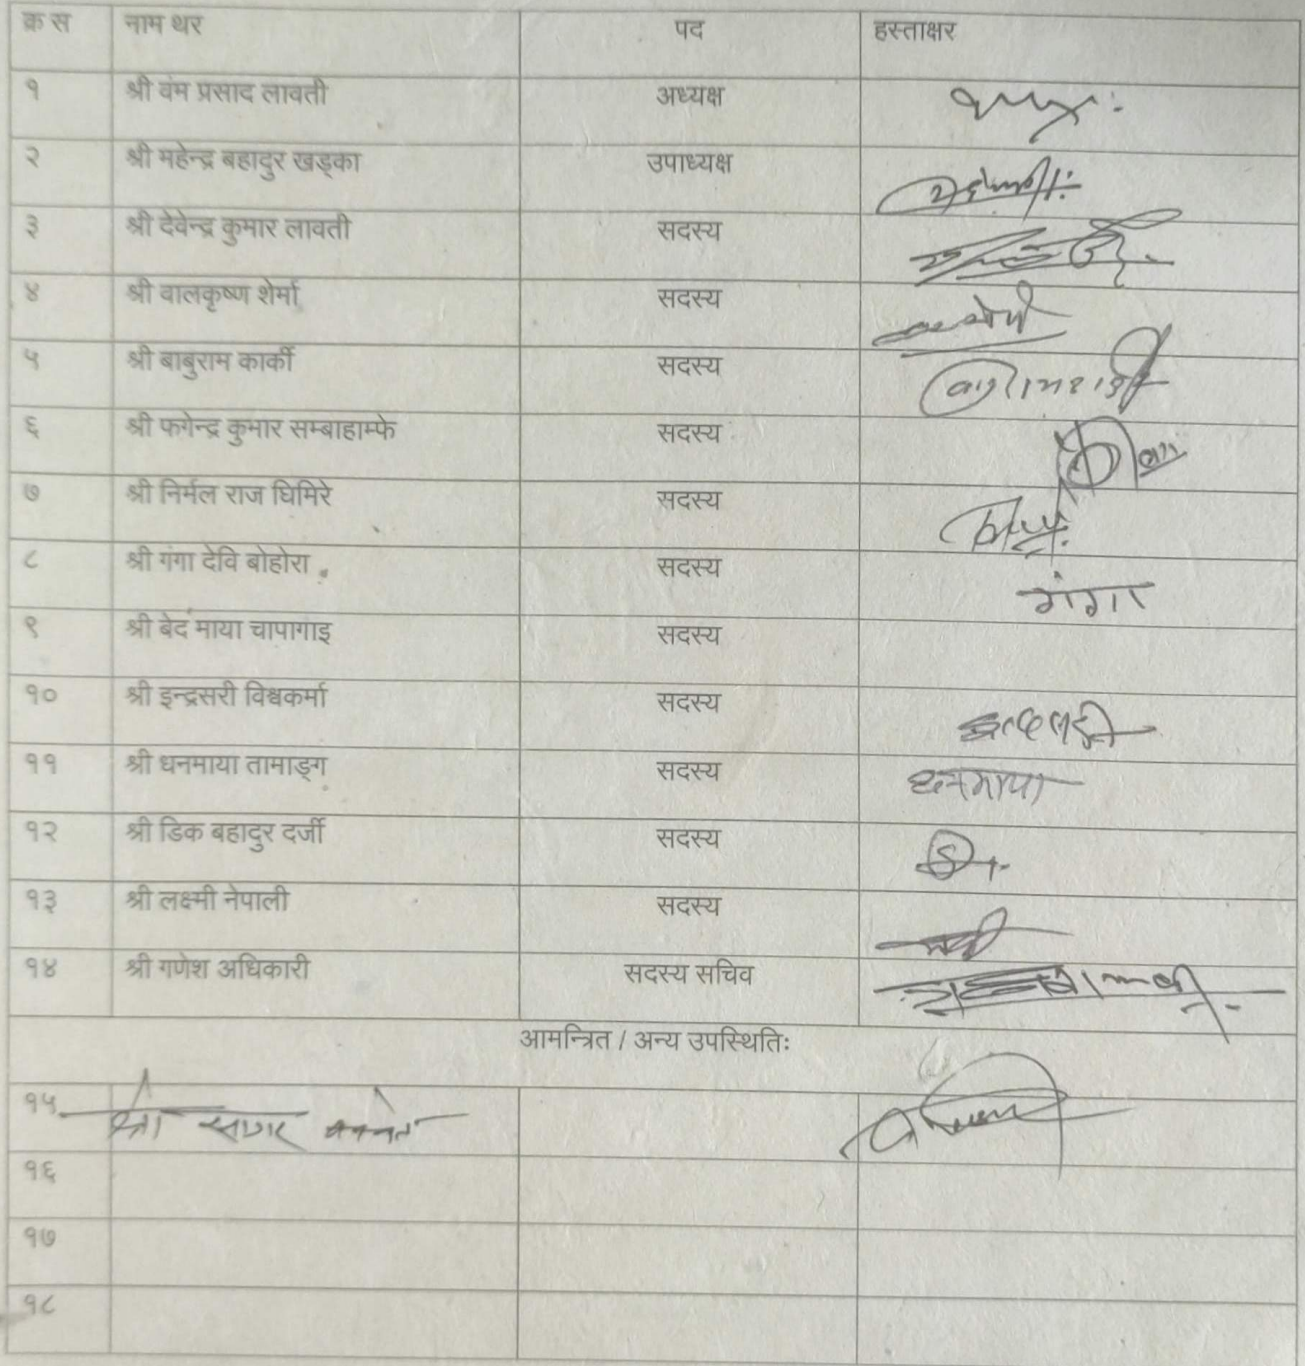 क्र स नाम थर पद हस्ताक्षर
१ श्री वंम प्रसाद लावती अध्यक्ष
२ श्री महेन्द्र बहादुर खड्का उपाध्यक्ष
३ श्री देवेन्द्र कुमार लावती सदस्य
४ श्री वालकृष्ण शेर्मा सदस्य
५ श्री बाबुराम कार्की सदस्य
६ श्री फगेन्द्र कुमार सम्बाहाम्फे सदस्य
७ श्री निर्मल राज घिमिरे सदस्य
८ श्री गंगा देवि बोहोरा सदस्य गंगा
९ श्री बेद माया चापागाइ सदस्य
१० श्री इन्द्रसरी विश्वकर्मा सदस्य
११ श्री धनमाया तामाङ्ग सदस्य धनमाया
१२ श्री डिक बहादुर दर्जी सदस्य
१३ श्री लक्ष्मी नेपाली सदस्य
१४ श्री गणेश अधिकारी सदस्य सचिव
आमन्त्रित / अन्य उपस्थितिः
१५ श्री सागर
१६
१७
१८